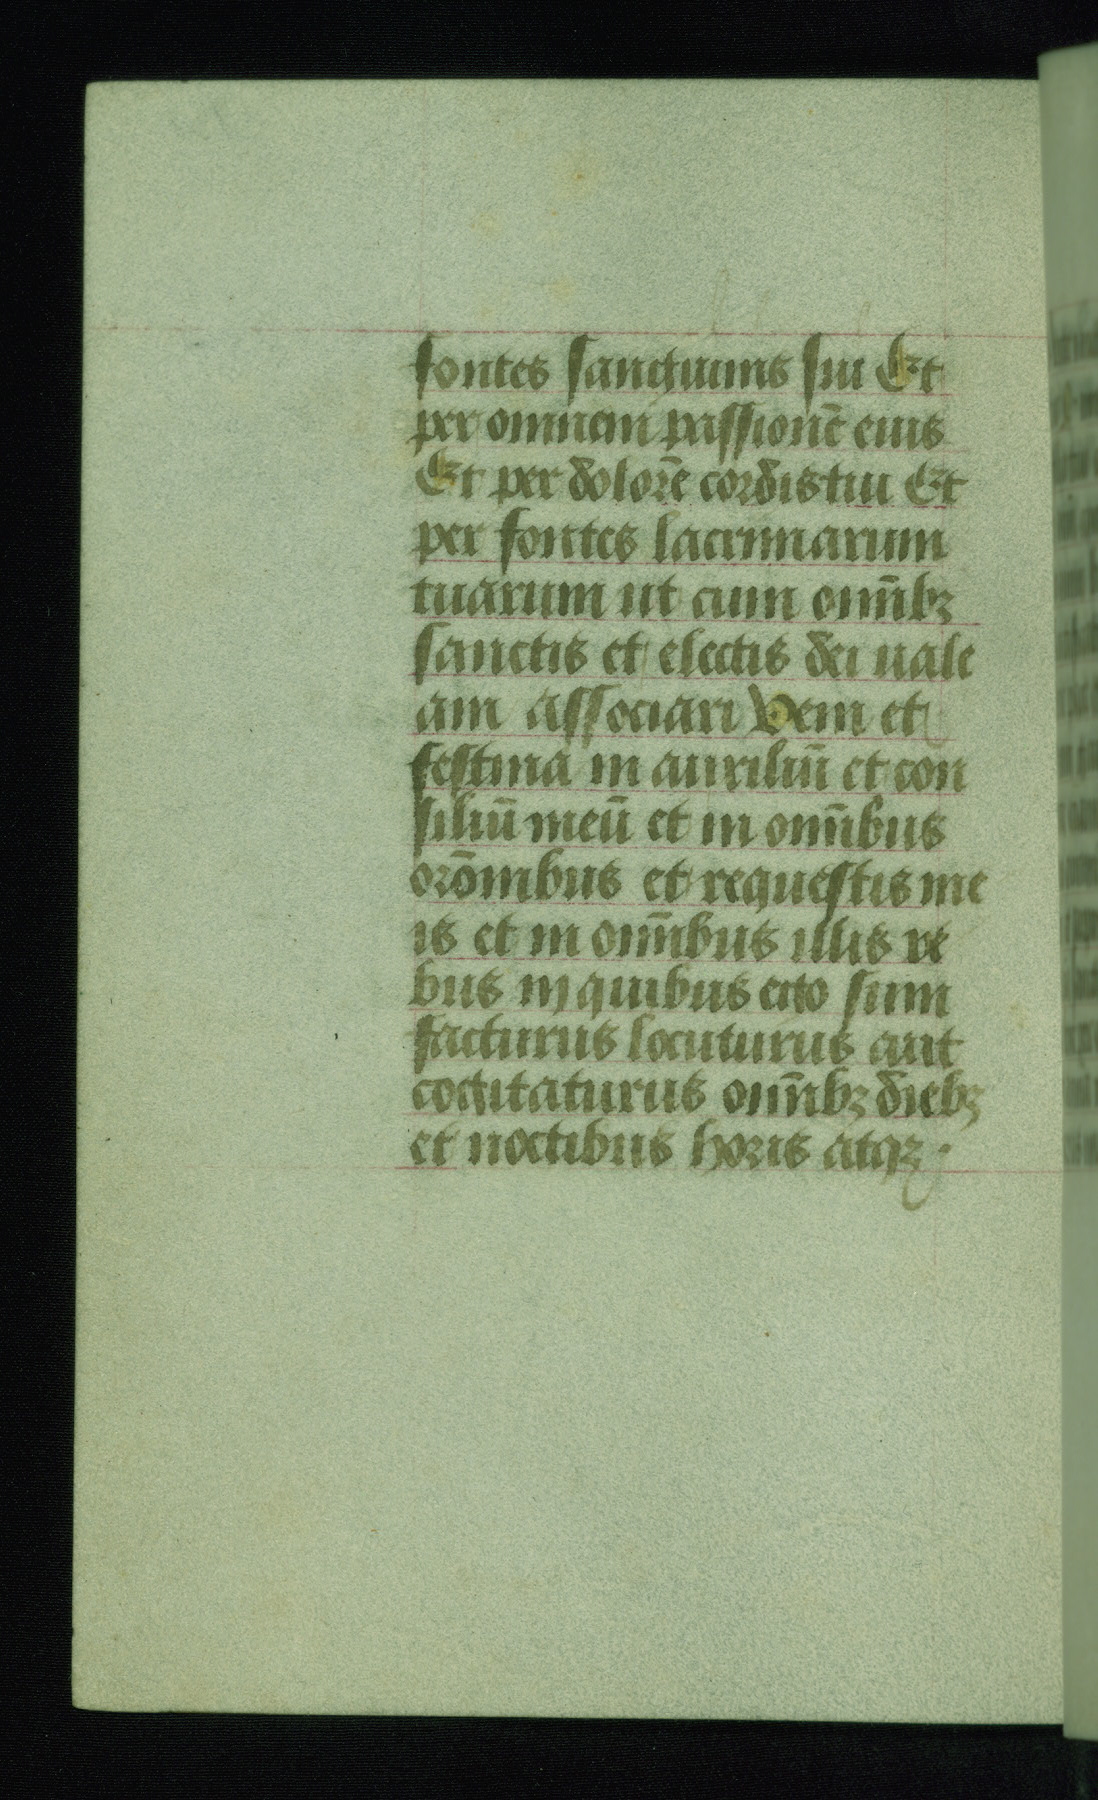 fontes sanguinis sui Et
per omnem passionē eius
Et per dolorē cordis tui Et
per fontes lacrimarum
tuarum ut cum om̄ibꝫ
sanctis et electis dei uale
am associari Veni et
festina in auxiliū et con
siliū meū et in om̄ibus
orōnibus et requestis me
is et in om̄ibus illis re
bus in quibus ego sum
facturus locuturus aut
cogitaturus om̄ibꝫ diebꝫ
et noctibus horis atqꝫ ·